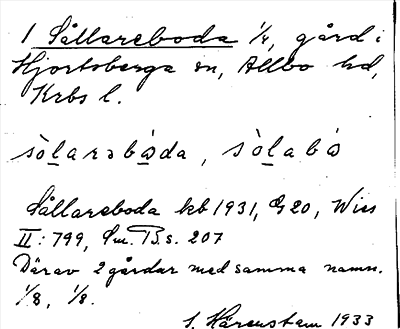 1 Sållareboda 1/4, gård i
Hjortsberga sn, Allbo hd,
Krbs l.
sòlarəbo̱da, sòlabó
Sållareboda kb 1931, G 20, Wies
II: 799, Sm. B. s. 207
Därav 2 gårdar med samma namn.
1/8, 1/8.
S. Härenstam 1933